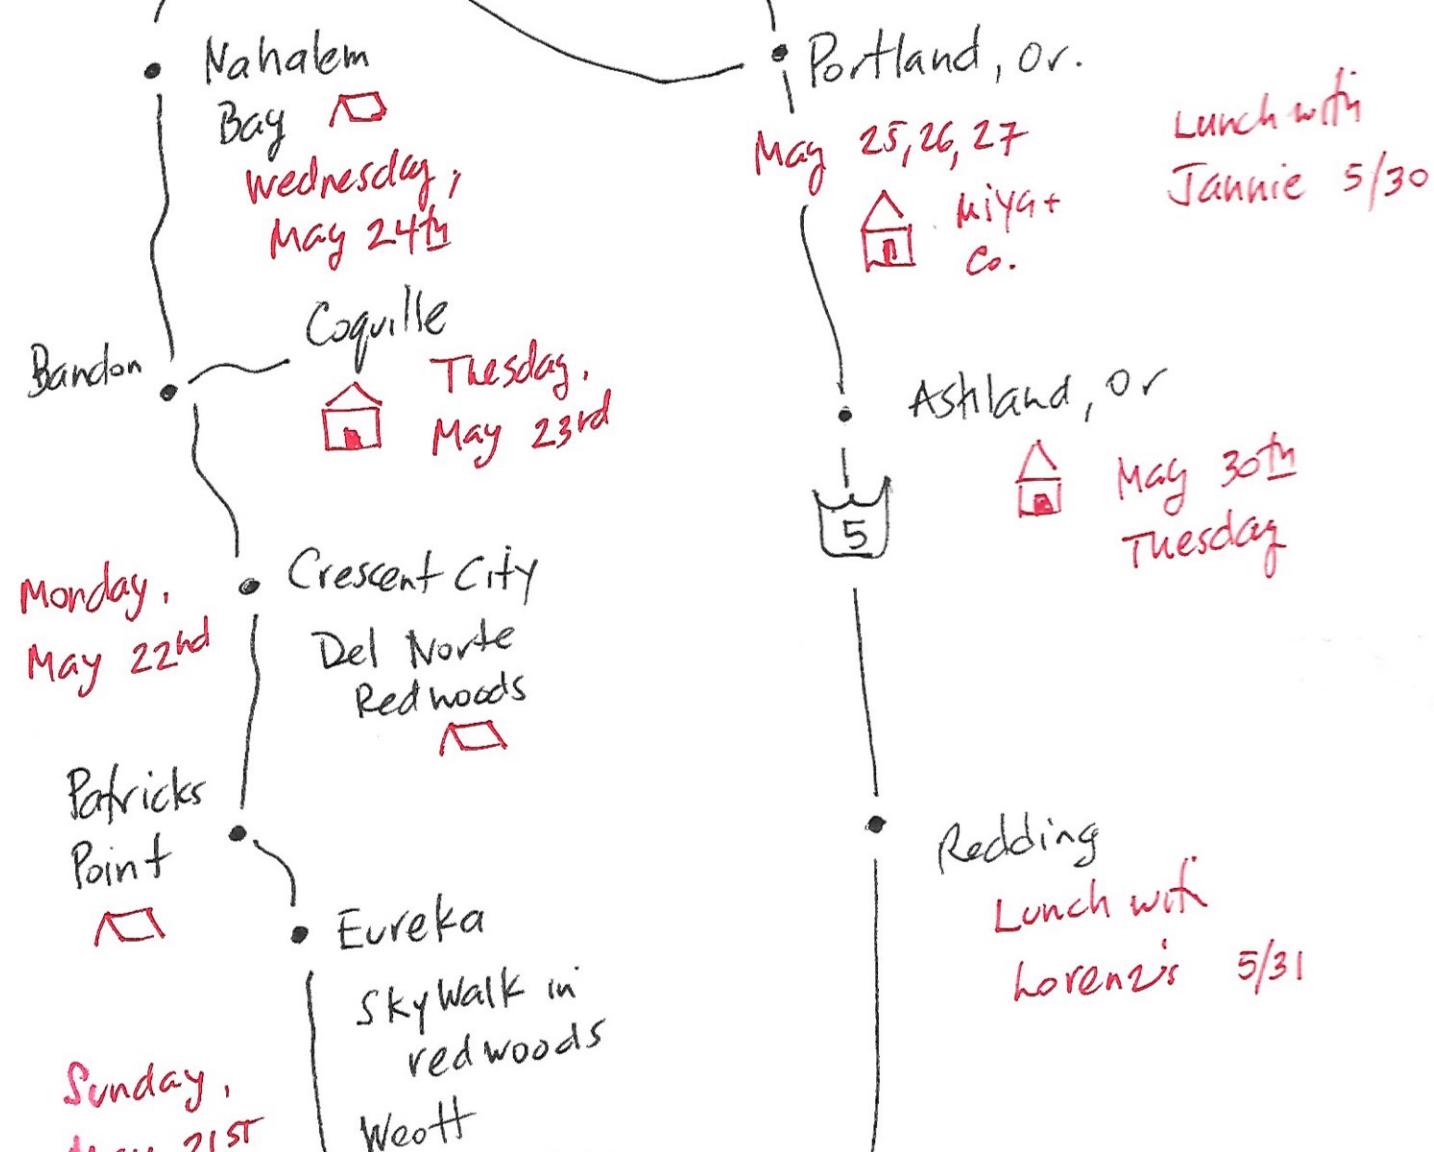 Nahalem
Bay
Wednesday,
May 24th
Bandon
Coquille
Tuesday,
May 23rd
Monday,
May 22nd
Crescent City
Del Norte
Redwoods
Patricks
Point
Eureka
SkyWalk in
redwoods
Sunday,
May 21ST
Weott
Portland, Or.
May 25, 26, 27
Miya +
Co.
Lunch with
Jannie 5/30
Ashland, Or
May 30th
Tuesday
5
Redding
Lunch with
Lorenz's 5/31